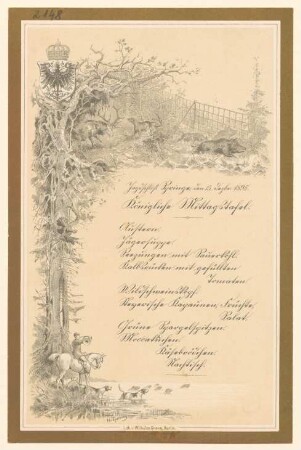 Z 148
Jagdschloß Springe, den 15. Dezbr. 1896.
Königliche Mittagstafel.
Austern
Jägersuppe
Seezungen mit Sauerkohl
Kalbsrücken mit gefüllten
Tomaten
Wildschweinskopf
Bayerische Kapaunen, Früchte,
Salat.
Grüne Spargelspitzen
Käsebrödchen
Nachtisch.